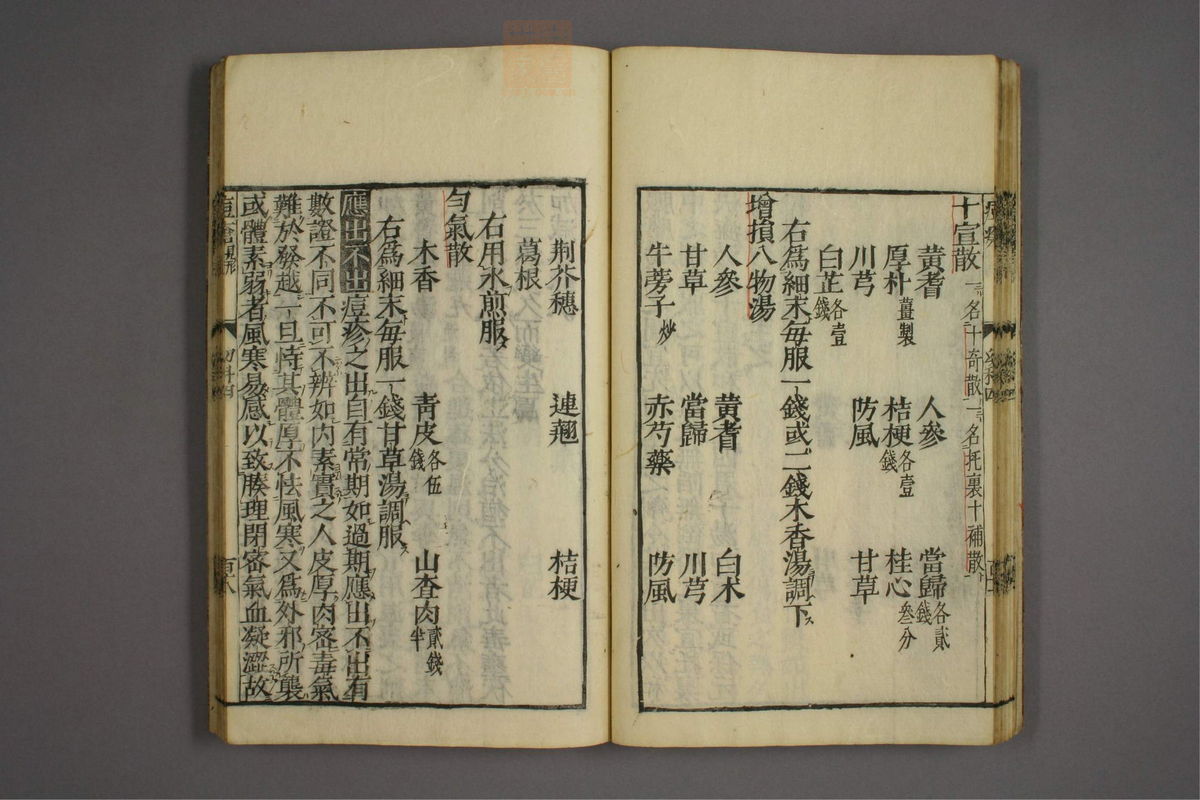 十宣散一名十奇散二名托裏十補散
黃耆 人參 當歸各貳錢
厚朴薑製 桔梗各壹錢 桂心叄分
川芎 防風 甘草
白芷各壹錢
右爲細末每服一錢或二錢木香湯調下
增損八物湯
人參 黃耆 白朮
甘草 當歸 川芎
牛蒡子炒 赤芍藥 防風
荊芥穗 連翹 桔梗
葛根
右用水煎服
勻氣散
木香 靑皮各伍錢 山查肉貳錢半
右爲細末每服一錢甘草湯調服
應出不出痘疹之出自有常期如過期應出不出有
數證不同不可不辨如內素實之人皮厚肉密毒氣
難於發越一旦恃其體厚不怯風寒又爲外邪所襲
或體素弱者風寒易感以致腠理閉密氣血凝澀故